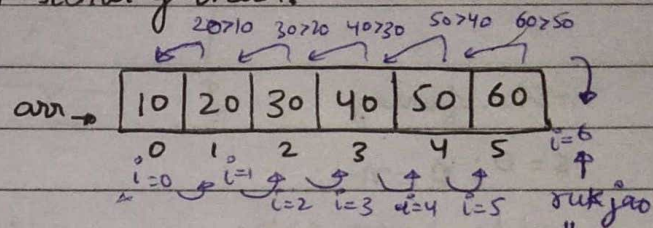 20>10 30>20 40>30 50>40 60>50
arr→ 10 20 30 40 50 60
0 1 2 3 4 5 i=6
i=0 i=1 i=2 i=3 i=4 i=5 rukjao